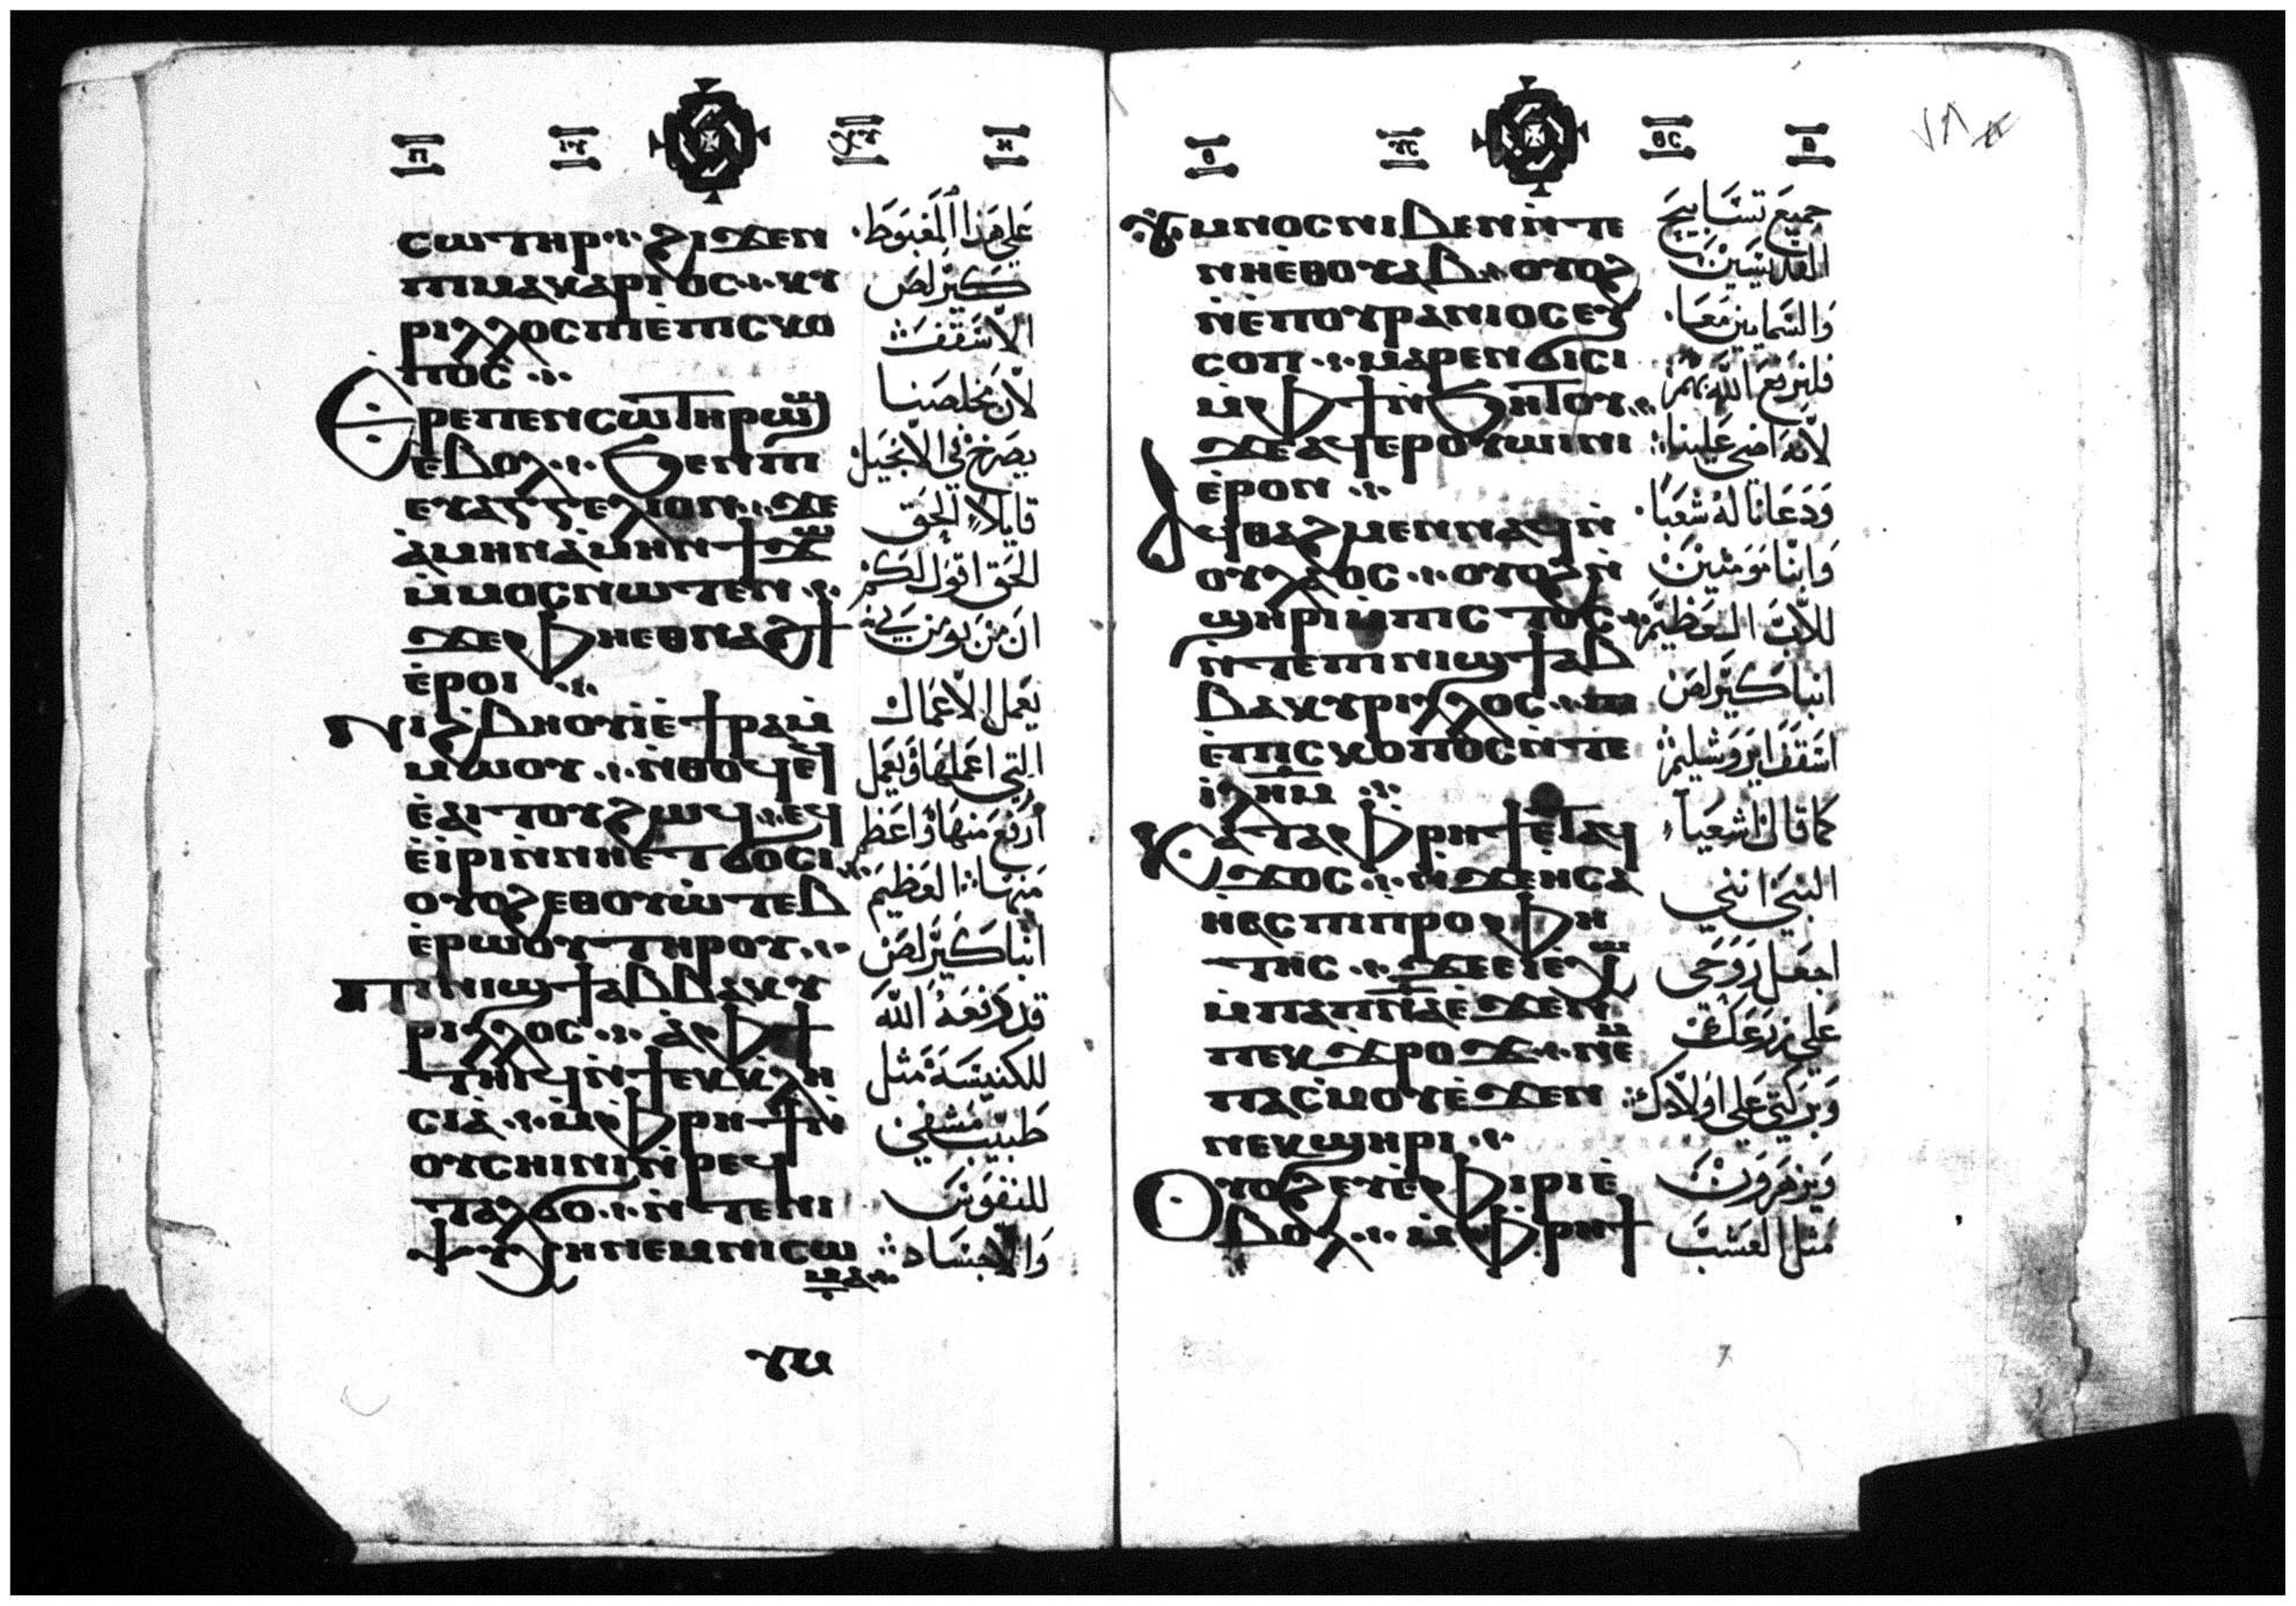 ⲡ ⲓⲩ ⲭⲩ ⲁ
ⲥⲱⲧⲏⲣ ϩⲓϫⲉⲛ
ⲡⲓⲙⲁⲕⲁⲣⲓⲟⲥ ⲕⲩ
ⲣⲓⲗⲗⲟⲥ ⲡⲓⲉⲡⲓⲥⲕⲟ
ⲡⲟⲥ
Ⲉⲣⲉⲡⲉⲛⲥⲱⲧⲏⲣ ⲱϣ
ⲉⲃⲟⲗ ϧⲉⲛⲡⲓ
ⲉⲩⲁⲅⲅⲉⲗⲓⲟⲛ ϫⲉ
ⲁ̀ⲙⲏⲛ ⲁ̀ⲙⲏⲛ ϯϫⲱ
ⲙ̀ⲙⲟⲥ ⲛⲱⲧⲉⲛ
ϫⲉ ⲫⲏⲉⲑⲛⲁϩϯ
ⲉ̀ⲣⲟⲓ
Ⲛⲓϩⲃⲏⲟⲩⲓ ⲉ̀ϯⲣⲁ ⲙ̀
ⲙⲱⲟⲩ ⲛ̀ⲑⲟϥ ⲉϥ
ⲉ̀ⲁⲓⲧⲟⲩ ϩⲱϥ ⲉϥ
ⲉ̀ⲓⲣⲓ ⲛ̀ⲛⲏⲉⲧϭⲟⲥⲓ
ⲟⲩⲟϩ ⲉⲑⲟⲩⲱⲧⲉⲃ
ⲉ̀ⲣⲱⲟⲩ ⲧⲏⲣⲟⲩ
Ⲡⲓⲛⲓϣϯ ⲁⲃⲃⲁ ⲕⲩ
ⲣⲓⲗⲗⲟⲥ ⲁ̀ ⲫϯ
ⲧⲏⲓϥ ⲛ̀ϯⲉⲕⲕⲗⲏ
ⲥⲓⲁ̀ ⲙ̀ⲫⲣⲏϯ ⲛ̀
ⲟⲩⲥⲏⲓⲛⲓ ⲛ̀ⲣⲉϥ
ⲧⲁⲗϭⲟ ⲛ̀ⲧⲉⲛⲓ
ⲯⲩⲭⲏ ⲛⲉⲙⲛⲓⲥⲱ
ⲙⲁ
ⲩⲙ
علي هذا المغبوط
كيرلص
الاسقف
لان مخلصنا
يصرخ في الانجيل
قايلا الحق
الحق اقول لكم
ان من يومن بي
يعمل الاعمال
التي اعملها ويعمل
ارفع منها واعظم
منها العظيم
انبا كيرلص
قد رفعه الله
للكنيسة مثل
طبيب مشفي
للنفوس
والاجساد
ⲑ ⲩⲥ ⲑⲥ ⲟ
Ⲩⲙⲛⲟⲥ ⲛⲓⲃⲉⲛ ⲛ̀ⲧⲉ
ⲛⲏⲉⲑⲟⲩⲁⲃ ⲟⲩⲟϩ
ⲛ̀ⲉⲡⲟⲩⲣⲁⲛⲓⲟⲥ ⲉⲩ
ⲥⲟⲡ ⲙⲁⲣⲉⲛϭⲓⲥⲓ
ⲙ̀ⲫϯ ⲛ̀ϧⲏⲧⲟⲩ
ϫⲉ ⲁϥⲉⲣⲟⲩⲱⲓⲛⲓ
ⲉ̀ⲣⲟⲛ
Ⲁϥⲑⲁϩⲙⲉⲛ ⲛⲁϥ ⲛ̀
ⲟⲩⲗⲁⲟⲥ ⲟⲩⲟϩ ⲛ̀
ϣⲏⲣⲓ ⲙ̀ⲡⲓⲥⲧⲟⲥ
ⲛ̀ⲧⲉⲡⲓⲛⲓϣϯ ⲁⲃ
ⲃⲁ ⲕⲩⲣⲓⲗⲗⲟⲥ ⲡⲓ
ⲉ̀ⲡⲓⲥⲕⲟⲡⲟⲥ ⲛ̀ⲧⲉ
ⲓ̀ⲗⲏⲙ
Ⲕⲁⲧⲁⲫⲣⲏϯ ⲉ̀ⲧⲁϥ
ϫⲟⲥ ⲛ̀ϫⲉ ⲏⲥⲁ
ⲏⲁⲥ ⲡⲓⲡⲣⲟⲫⲏ
ⲧⲏⲥ ϫⲉ ⲉⲓⲉ̀ⲭⲱ
ⲙ̀ⲡⲁⲡⲛⲁ ⲉ̀ϫⲉⲛ
ⲡⲉⲕϫⲣⲟϫ ⲛⲉⲙ
ⲡⲁⲥⲙⲟⲩ ⲉ̀ϫⲉⲛ
ⲛⲉⲕϣⲏⲣⲓ
Ⲟⲩⲟϩ ⲉⲩⲉ̀ⲫⲓⲣⲓ ⲉ̀
ⲃⲟⲗ ⲙ̀ⲫⲣⲏϯ
جميع تسابيح
القديسين
والسمايين معا
فلنرفع الله بهم
لانه اضى علينا
ودعانا له شعبا
وابنا مومنين
للاب العظيم
انبا كيرلص
اسقف ايروشليم
كما قال اشعياء
النبي انني
اجعل روحى
علي زرعك
وبركتي علي اولادك
ويزهرون
مثل العشب